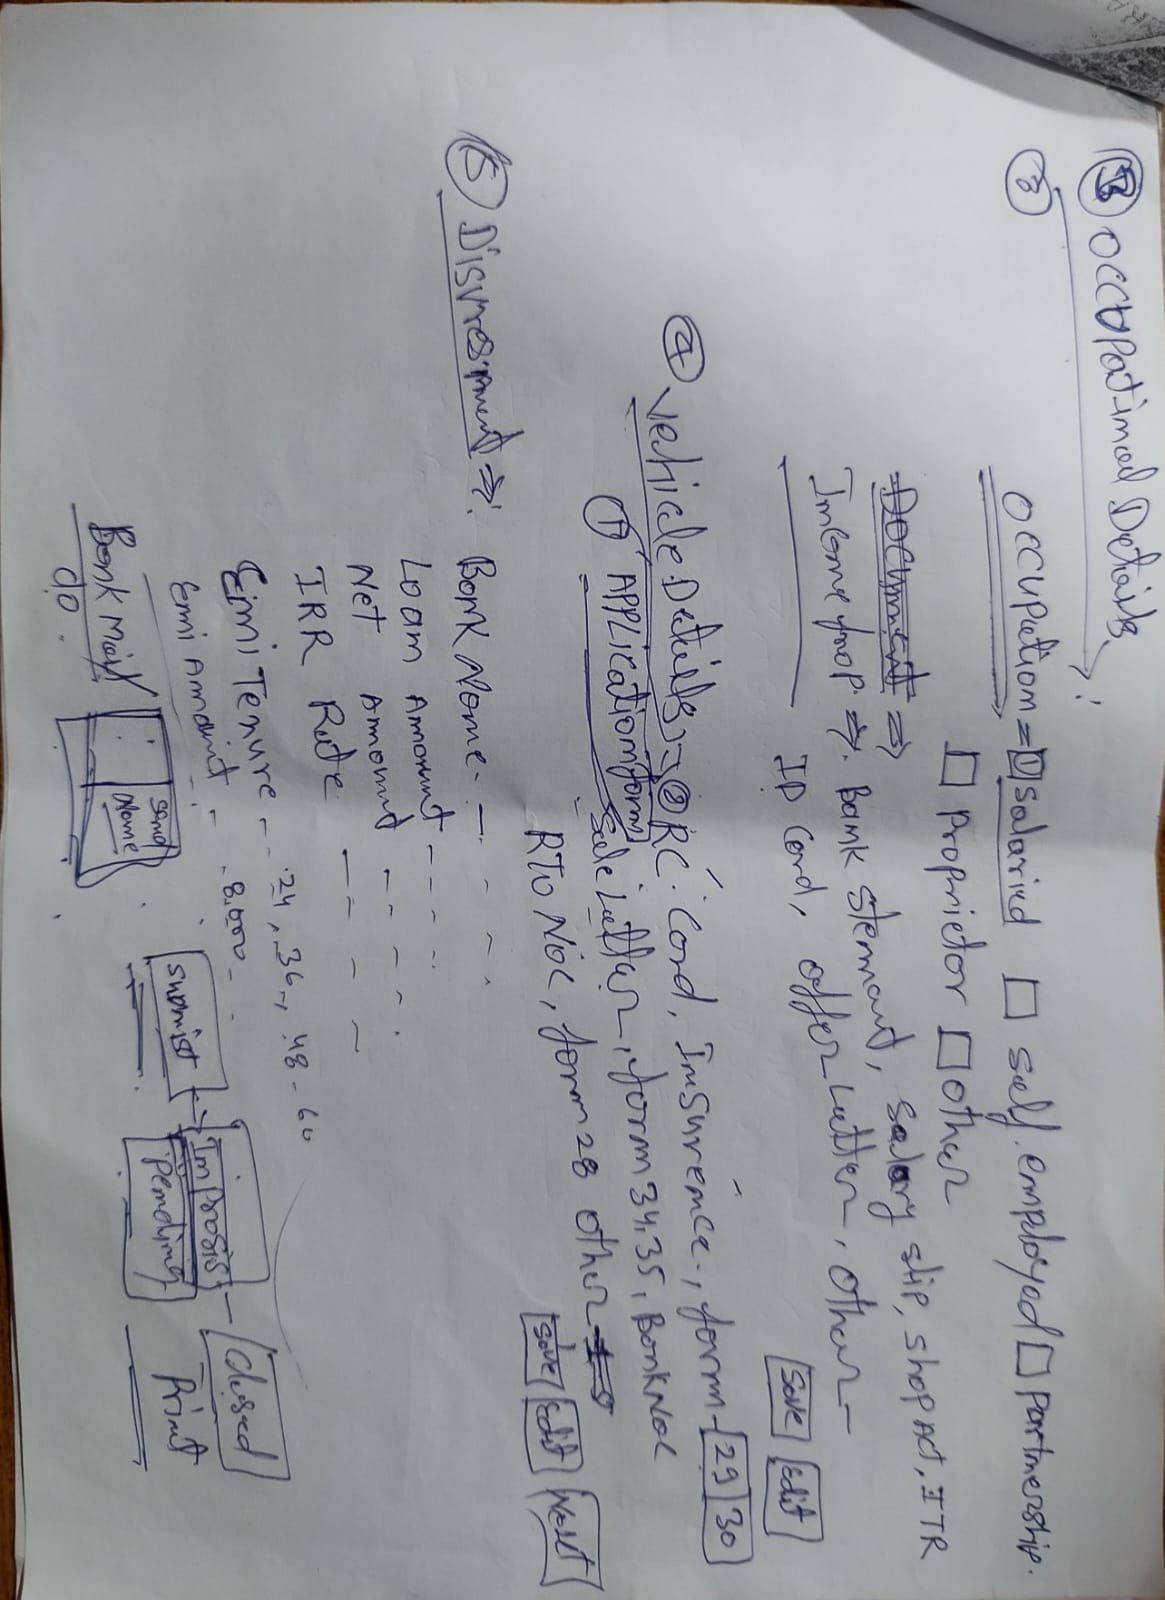 B Occupational Details :
3
Occupation = 1 Salaried □ Self employed □ Partnership.
□ Proprietor □ other
Document ⇒
Income prop. ⇒. Bank stemant, Salary slip, shop Act, ITR
ID Card, offer Latter, Other
Save Edit
4 Vehicle Details ⇒ 2 RC. Card, Insurence., form - 29 30
1 APPLication form Sale Latter, form 34,35, Bank NOC
RTO NOC, form 28 other
Save Edit Next
5 ⇒: Bank Name - - - -
Loan Amount - - - -
Net Amount - - - - -
IRR Rate - - - -
Emi Tenure - - 24, 36, 48 - 60
Emi Amount - - 8,000 -
Submist Improsis Closed
Pending Print
Bank Mail send
Name
do.